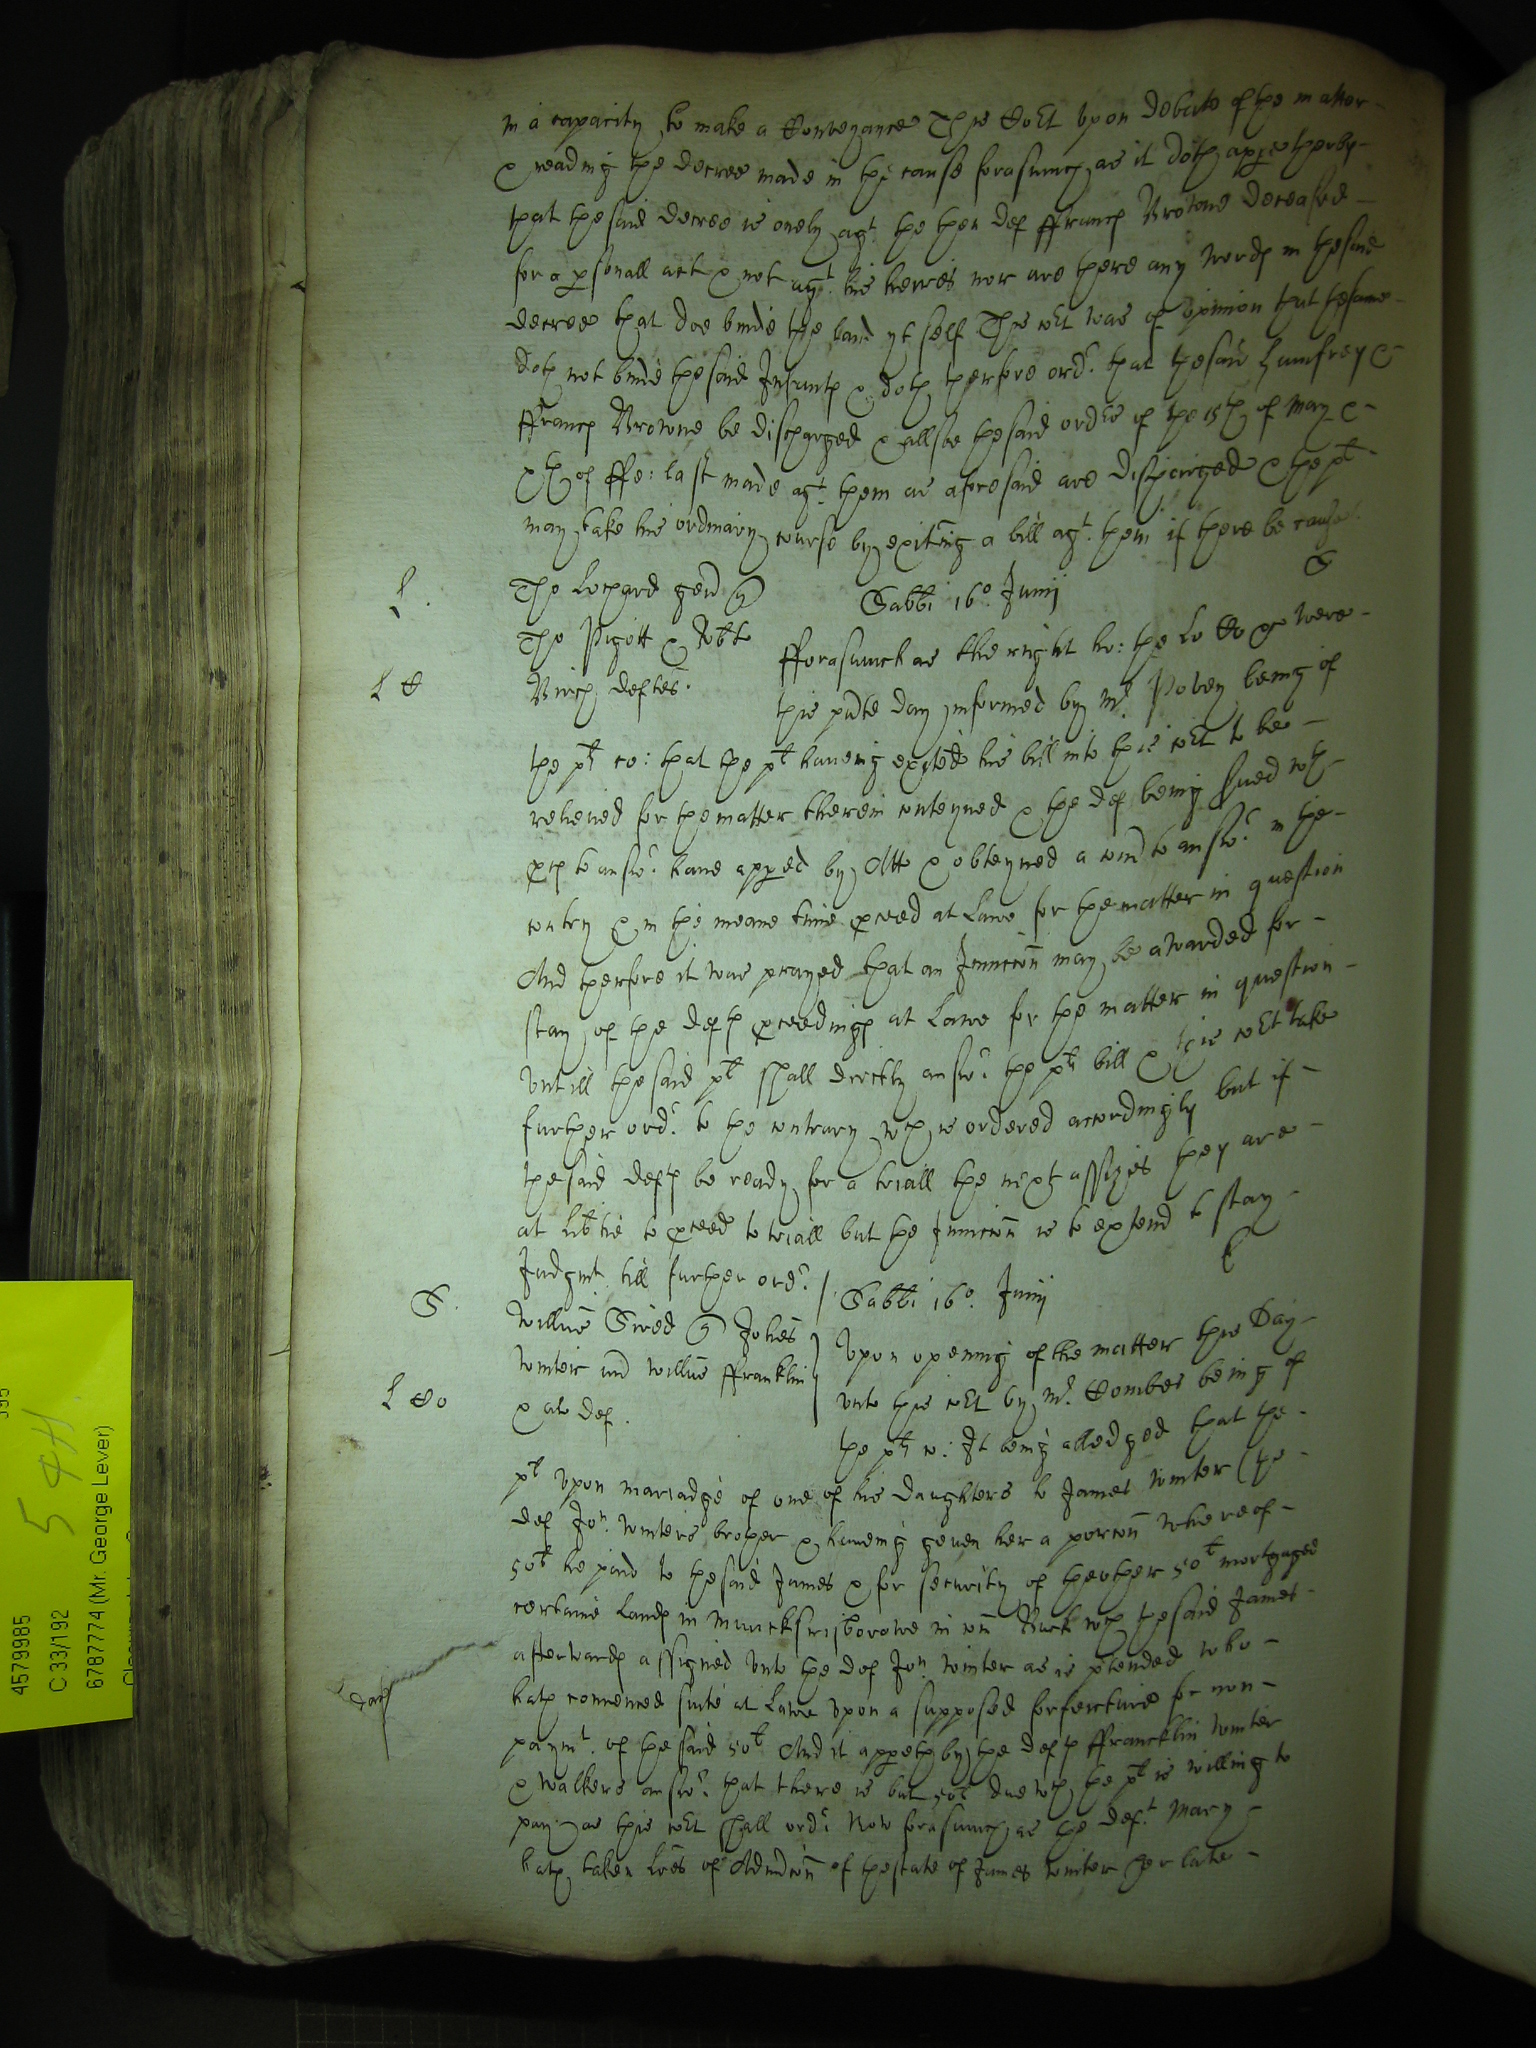 in a capacity to make a Conveyance This Co:rt upon debate of the matter
& reading the decree made in the cause forasmuch as it doth appe therby
that the said decree is onely agt. the then def ffrancs Browne deceased
for a psonall act & not agt. his heires nor are there any words in the said
decree that doe binde the land yt self This cort was of opinion that the same
doth not binde the said Infants & doth therfore ordr. that the said Humfrey &
ffrancs Browne be discharged & allsoe the said ordrs of the 15th of May &
xth of ffe: last made agt. them as aforesaid are discharged & the plt
may take his ordinary course by exiting a bill agt. them if there be cause
S
L.
Tho Lochard gen qs
Sabbi 16o. Junij
Tho Pigott & Robto
fforasmuch as the right ho: the Lo Co rs were
L C
Birch deftes.
this pnte day informed by Mr. Povey being of
the plts co: that the plt haveing exited his bill into this cort to be
releived for the matter therein conteyned & the def being sued wth
pces to answr. have appeed by Atto & obteyned a com to answr. in the
contry & in the meane time pceed at Lawe for the matter in question
And therfore it was prayed that an Iniuccon may be awarded for
stay of the defts pceedings at Lawe for the matter in question
untill the said plt shall directly answr. the plts bill & this cort take
further ordr. to the contrary wch is ordered accordingly but if
the said defts be ready for a triall the next assizes they are
at libtie to pceed to triall but the Iniuccon is to extend to stay
Judgmt. till further ordr.
S.
Sabbi 16o. Junij
Willus Sired qs Johes
Upon opening of the matter this Day
Winter and Willus ffranklin
unto this cort by Mr. Combes being of
L Co
& als def.
the plts co: It being alledged that the
plt upon mariadge of one of his daughters to James Winter (the
def Jon. Winters brother & haveing geven her a porcon whereof
50l he paid to the said James & for security of the other 50l mortgaged
certaine Lands in Muncksrisborowe in com Buck wch the said James
afterwards assigned unto the def Jon. Winter as is ptended who
hath comenced suite at Lawe upon a supposed forfeicture for non
paymt. of the said 50l And it appeth by the defts ffrancklin Winter
& Walkers answr. that there is but 50l due wch the plt is willing to
pay as this cort shall ordr. Now forasmuch as the deft. Mary
hath taken Lres of Admicon of the state of James Winter her late
4579985
C 33/192
6787774 (Mr. George Lever)